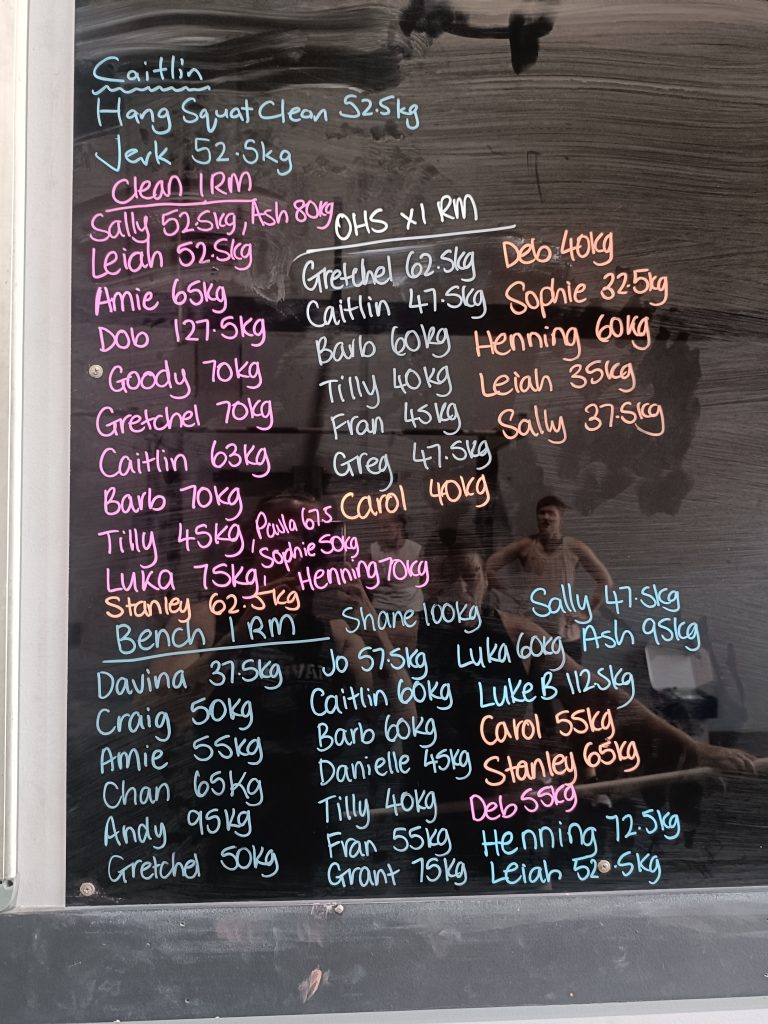 Caitlin
Hang Squat Clean 52.5kg
Jerk 52.5kg
Clean 1RM
Sally 52.5kg, Ash 80kg
Leiah 52.5kg
Amie 65kg
Dob 127.5kg
Goody 70kg
Gretchel 70kg
Caitlin 63kg
Barb 70kg
Tilly 45kg, Paula 67.5
Sophie 50kg
Luka 75kg, Henning 70kg
Stanley 62.5kg
OHS x1 RM
Gretchel 62.5kg
Caitlin 47.5kg
Barb 60kg
Tilly 40kg
Fran 45kg
Greg 47.5kg
Carol 40kg
Deb 40kg
Sophie 32.5kg
Henning 60kg
Leiah 35kg
Sally 37.5kg
Bench 1RM
Davina 37.5kg
Craig 50kg
Amie 55kg
Chan 65kg
Andy 95kg
Gretchel 50kg
Shane 100kg
Jo 57.5kg
Caitlin 60kg
Barb 60kg
Danielle 45kg
Tilly 40kg
Fran 55kg
Grant 75kg
Sally 47.5kg
Luka 60kg Ash 95kg
Luke B 112.5kg
Carol 55kg
Stanley 65kg
Deb 55kg
Henning 72.5kg
Leiah 52.5kg